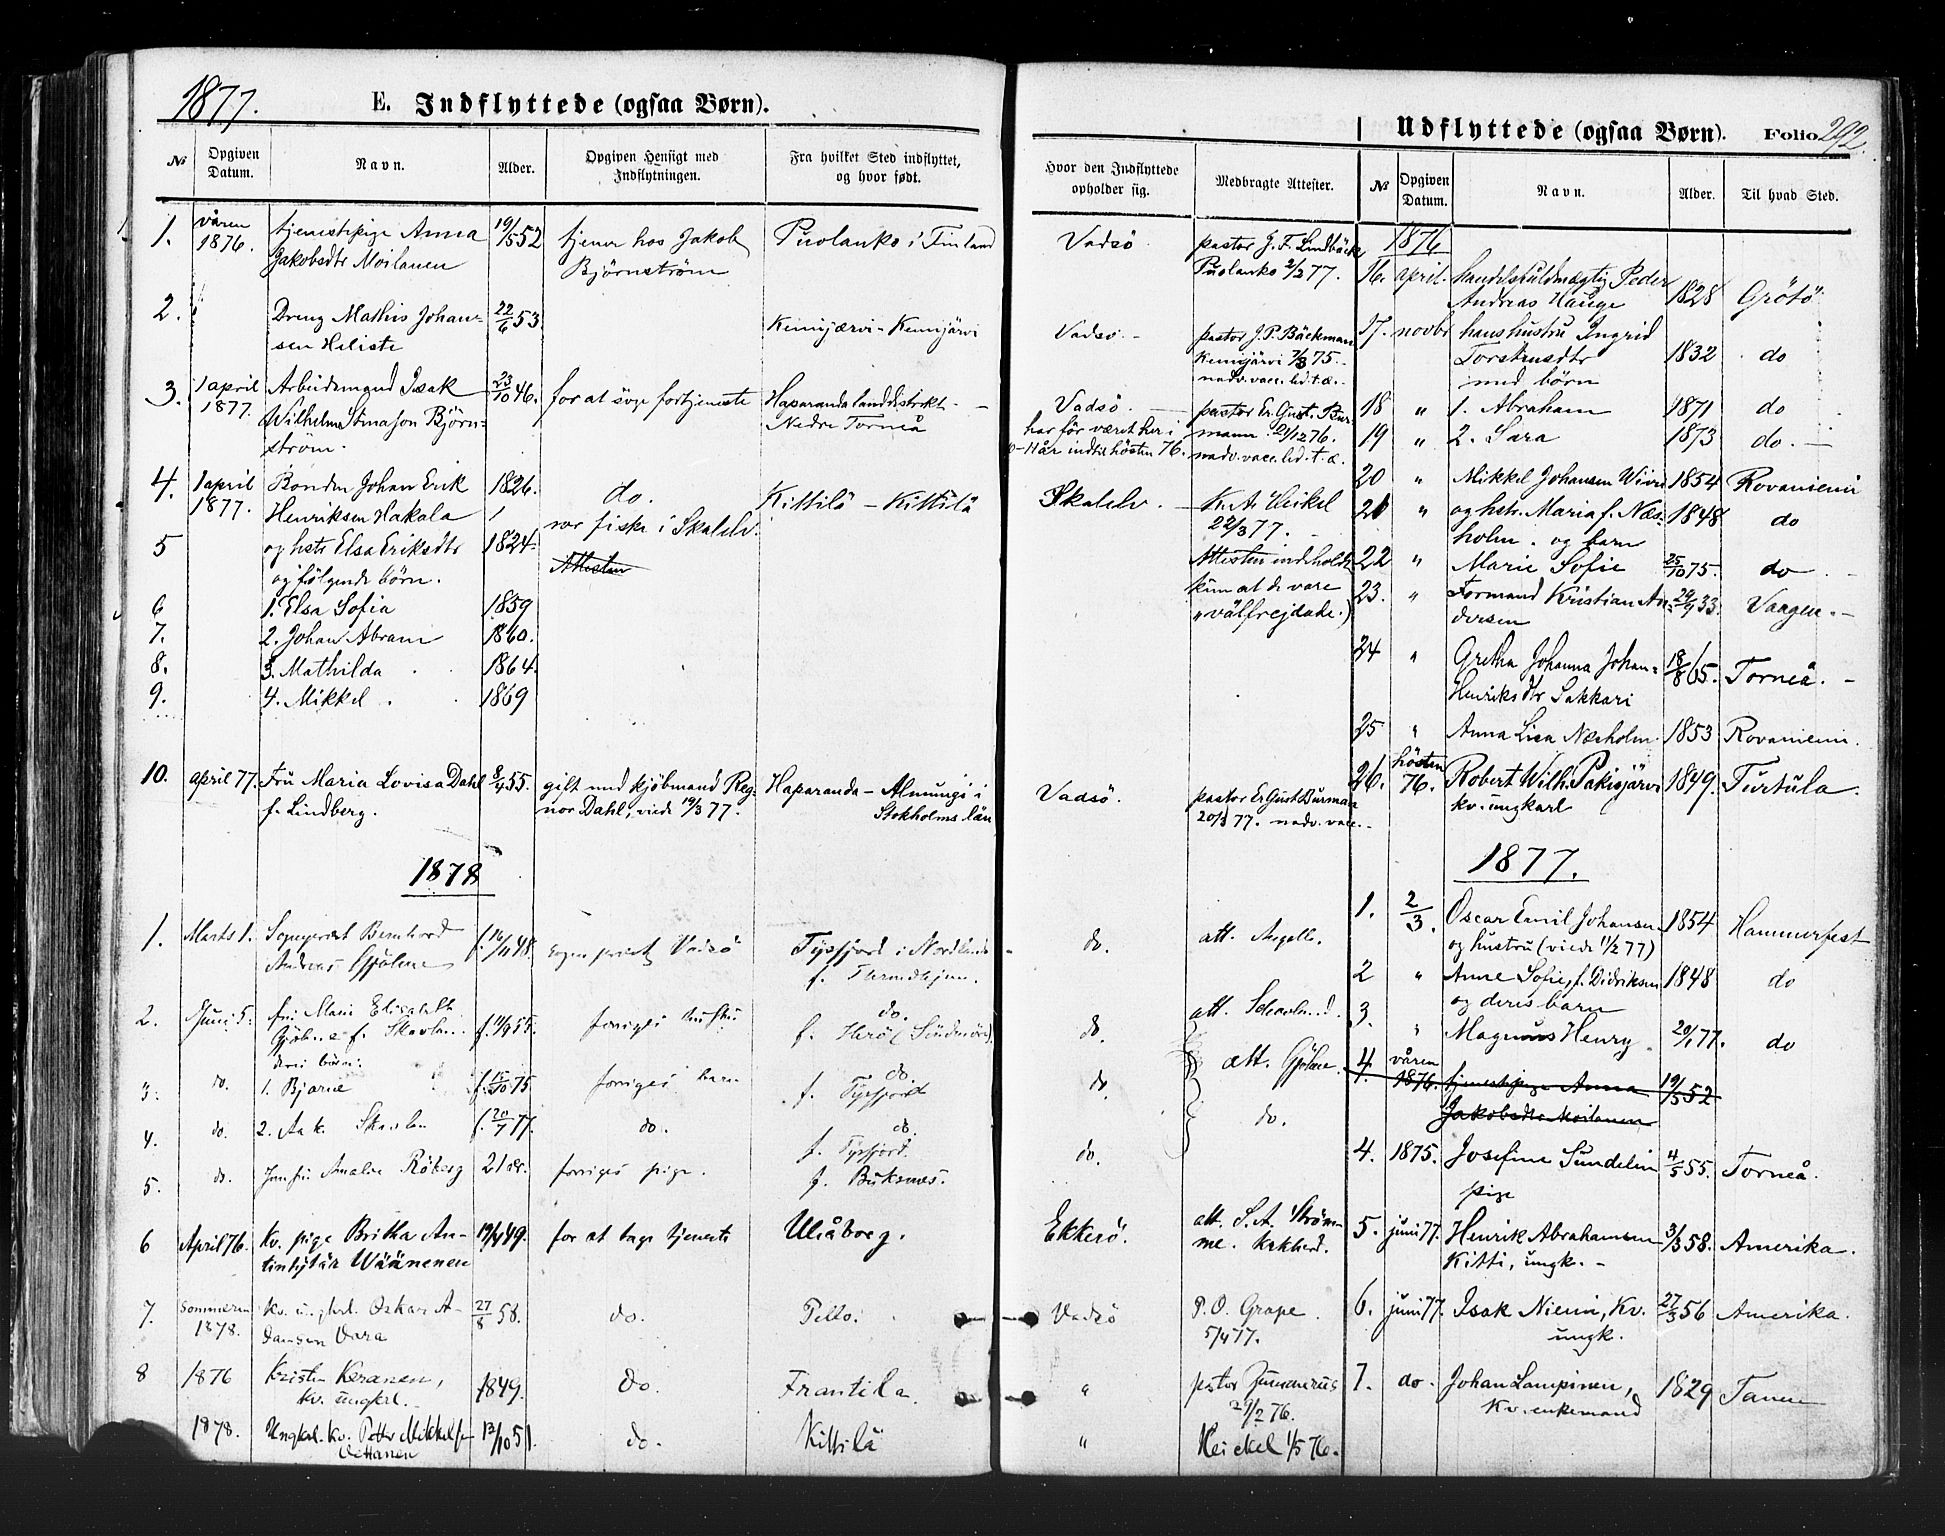 1877.
E. Indflyttede (ogsaa Børn).
№
Opgiven Datum.
Navn.
Alder.
Opgiven Hensigt med Indflytningen.
Fra hvilket Sted indflyttet, og hvor født.
1. våren 1876. tjenestepige Anna 19/5 52 tjener hos Jakob Puolanko i Finland
Jakobsdtr Moilanen Björnström
2. Dreng Mathis Johan- 22/6 53 Kemijærvi - Kemijärvi
sen Heliste
3. 1 april 1877. Arbeidsmand Isak 23/10 46. for at søge fortjeneste Haparanda landdistrikt -
Wilhelm Björn- Nedre Torneå
ström.
4. 1 april 1877. Bonden Johan Erik 1826. do. Kittilä - Kittilä
Henriksen Hakala fiske i Skalelv.
5 og hstr Elsa Eriksdtr 1824.
og følgende børn. Attesten
6 1. Elsa Sofia 1859
7. 2. Johan Abram 1860.
8. 3. Mathilda 1864.
9. 4. Mikkel 1869
10. april 77. Fru Maria Lovisa Dahl 8/4 55. gift med kjøbmand Reg- Haparanda - Almunge i
f. Lindberg. nor Dahl, viede 19/3 77. Stokholms län
1878
1. Marts 1. Sogneprest Bernhard f. 48. sogneprest Vadsö Tysfjord i Nordland
Andreas Gjølme f. Throndhjem.
2. Juni 5. fru Marie Elisabeth f. 55. forriges hustru do.
Gjølme f. Skavlan. f. Herö (Söndmöre)
deres börn:
3. do. 1. Bjarne f. 15/10 75 forriges barn do
f. Tysfjord
4. do. 2. Aa Skavlan f. 20/7 77. do. do.
f. Tysfjord.
5. do. Jomfru Amalie Röberg 21 år. forriges pige. f. Buksnes.
6 April 76. Kv. pige Britha An- 19/4 49. for at tage tjeneste Uleåborg.
tintytär Wäänenen
7. Sommeren 1878. Kv. ungkrl. Oskar A- 27/8 58. do. Pello.
damsen Vara
8 1876 Kristen Keranen, 1849. do. Frantila
Kv. ungkrl.
1878. Ungkrl. Kv. Petter Mikkelsen 12/10 51. do. Kittilä
Udflyttede (ogsaa Børn). Folio 292.
Hvor den Indflyttede opholder sig.
Medbragte Attester.
№
Opgiven Datum.
Navn.
Alder.
Til hvad Sted.
Vadsö. pastor J. F. Lindbäck 1876
Puolanko 2/2 77. 16. april. handelsfuldmægtig Peder
Andreas Hauge 1828 Grötö
Vadsö. - pastor J. P. Bäckman 17. novbr hans hustru Ingrid
Kemijärvi 7/3 75. - Torstensdtr 1832 do
nadv. vacc. led. t. æ. - med börn
Vadsö. pastor Er. Gust. Bur- 18 " 1. Abraham 1871 do
har för været her i mann 21/12 76. 19 " 2. Sara 1873 do. -
år indtil hösten 76. nadv. vacc. led. t. æ.
20 " Mikkel Johansen 1854 Rovaniemi
Skalelv. - K. A. Heikel 21 " og hstr. Maria f. Næs- 1848 do
22/3 77. holm. og barn
Attesten indeholdt 22 " Marie Sofie 25/10 75. do. -
kun at de vare 23. " Formand Kristian An- 29/9 33. Vaagen. -
"välfrejdade.) dersen
24 " Gretha Johanna Johan- 18/8 65. Torneå. -
Henriksdtr Sakkari
25 " Anna Lisa Næsholm. 1853 Rovaniemi.
Vadsö. pastor Er Gust Burman 26. hösten 76. Robert Wilh. Pakisjärvi 1849. Turtula.
20/3 77. nadv. vacc. - kv. ungkarl
1877.
do. att. Angell. 1. 2/3. Oscar Emil Johansen 1854 Hammerfest
og hustru (viede 11/2 77)
2 " Anne Sofie, f. Didriksen 1848 do
og deres barn
do. att. 3. " Magnus Henry 20/1 77. do
do. att. Gjölme. 4. våren 1876. tjenestepige Anna 19/5 52
do. Jakobsdtr Moilanen
do. 4. 1875. Josefine Sundelin 4/5 55. Torneå.
pige
Ekkerö. att. S. A. Ström- 5. juni 77. Henrik Abrahamsen 3/3 58. Amerika.
me. Kitti, ungk. -
Vadsö P. O. Grape 6. juni 77. Isak Niemi, Kv. 27/3 56 Amerika.
5/4 77. ungk.
" pastor Gummerus 7. do. Johan Lampinen, 1829 Tanen
2 /2 76. Kv. enkemand
" Heickel 1/5 76.